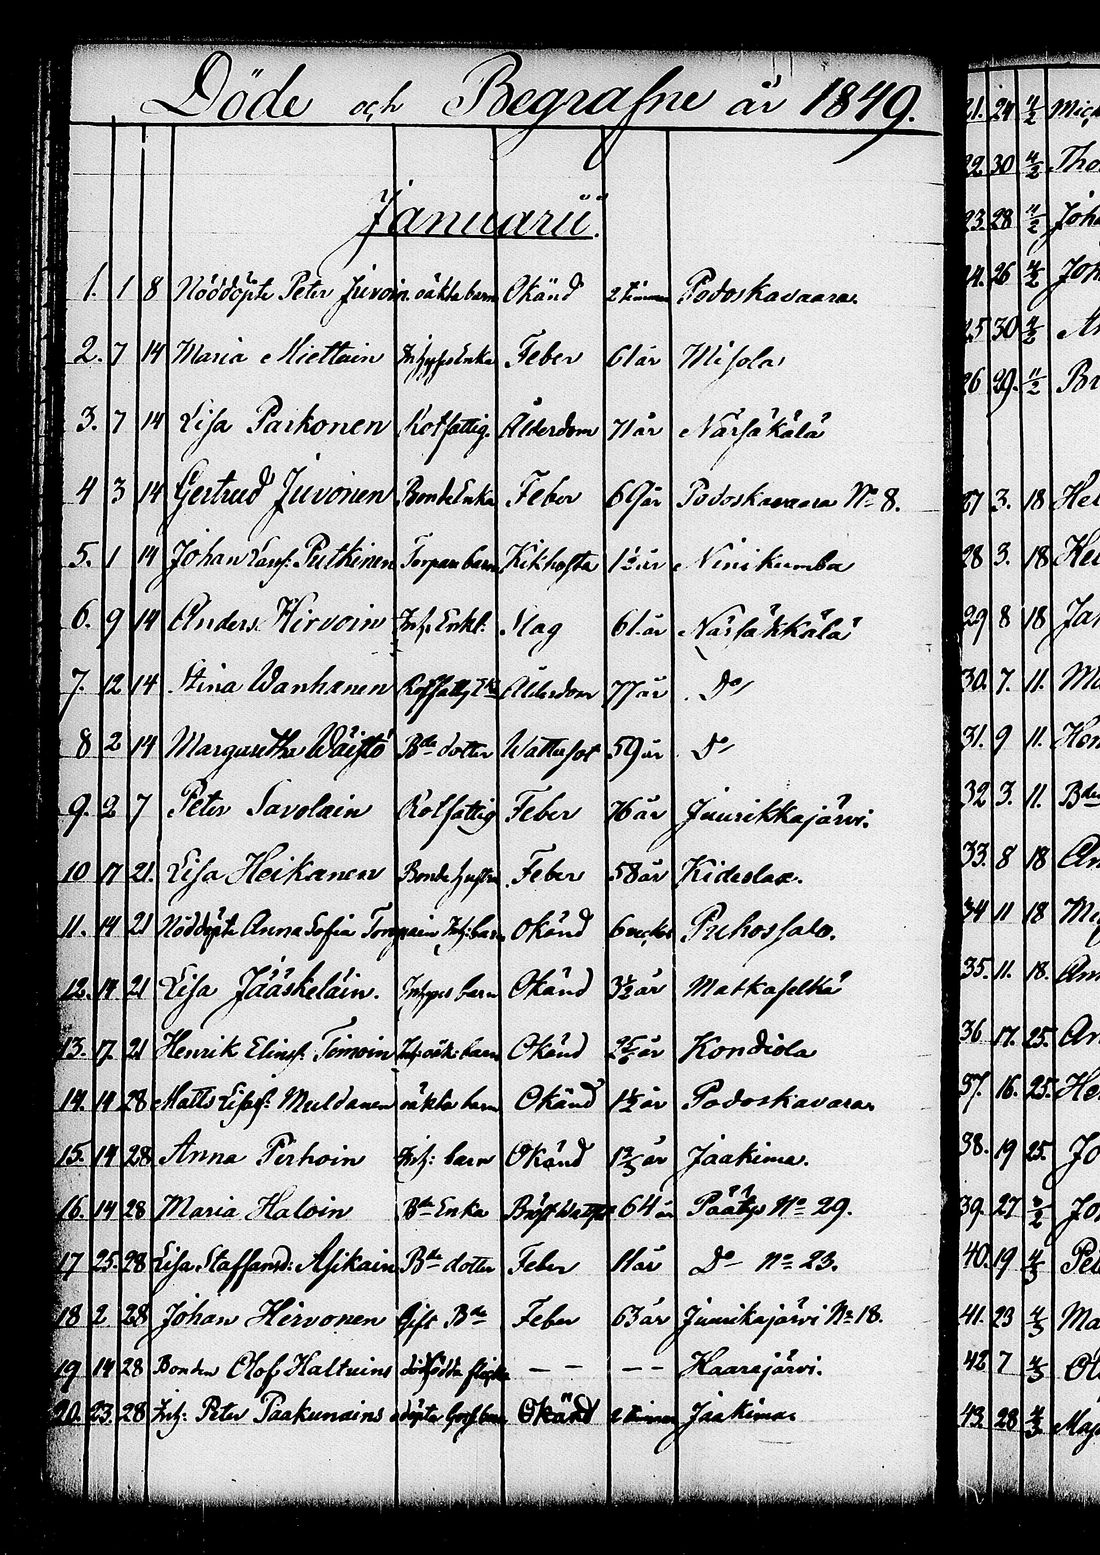 Döde och Begrafne år 1849.
Januarii.
1. 1 8 Nöddöpte Peter Juvoin oäkta barn Okänd 2 timmar Podoskavaara
2. 7 14 Maria Miettain Inhyses Enka Feber 61 år Misola
3. 7 14 Lisa Parkonen Rotfattig. Ålderdom 71 år Närsäkälä
4 3 14 Gertrud Juvonen Bonde Enka Feber 69 år Podoskavaara No 8.
5. 1 14 Johan Putkinen Torpare barn Kikhosta 1½ år Niinikumba
6. 9 14 Anders Hirvoin Inh. Enkl. Slag 61 år Närsäkkälä
7. 12 14 Stina Wanhanen Rotfattig Ålderdom 77 år Do
8 2 14 Margaretha Wäistö Bde dotter Wattusot 59 år Do
9. 2 7 Peter Savolain Rotfattig Feber 76 år Juurikkajärvi.
10 17 21. Lisa Heikanen Bonde hustru Feber 58 år Kideslax.
11. 14 21 Nöddöpte Anna Sofia Inh: barn Okänd 6 veckor Puhossalo.
12. 14 21 Lisa Jääskeläin. Inhyses barn Okänd 3½ år Matkaselkä
13. 17. 21 Henrik Elinsf. Timoin Inh: oäk: barn Okänd Kondiola
14. 14 28 Matts Lisasf: Muldanen oäkta barn Okänd 1½ år Podoskavara
15. 14 28 Anna Pirhoin Inh: barn Okänd år Jaakima.
16. 14 28 Maria Haloin Bde Enka 64 år Päätys No 29.
17 25. 28 Lisa Staffansd: Asikain Bde dotter Feber 11 år Do No 23.
18 2. 28 Johan Hirvonen Gift Bde Feber 63 år Juurikajärvi No 18.
19. 14 28 Bonden Olof Haltuins dödfödda flicka — — — — Haarajärvi.
20. 23. 28 Inh: Peter Paakunains odöpta Gossbarn Okänd 2 timmar Jaakima
21. 24 4/2
22. 30 4/2
23. 28 4/2
24. 26 4/2
25 30 4/2
26 29. 11/2
27 3. 18
28 3. 18
29 8 18
30. 7. 11.
31. 9 11.
32 3. 11.
33. 8 18
34 11 18
35. 11. 18.
36 17. 25.
37. 16. 25.
38. 19 25.
39. 27 4/2
40. 19 4/3
41. 23 4/3
42 7 4/3
43. 28 4/3